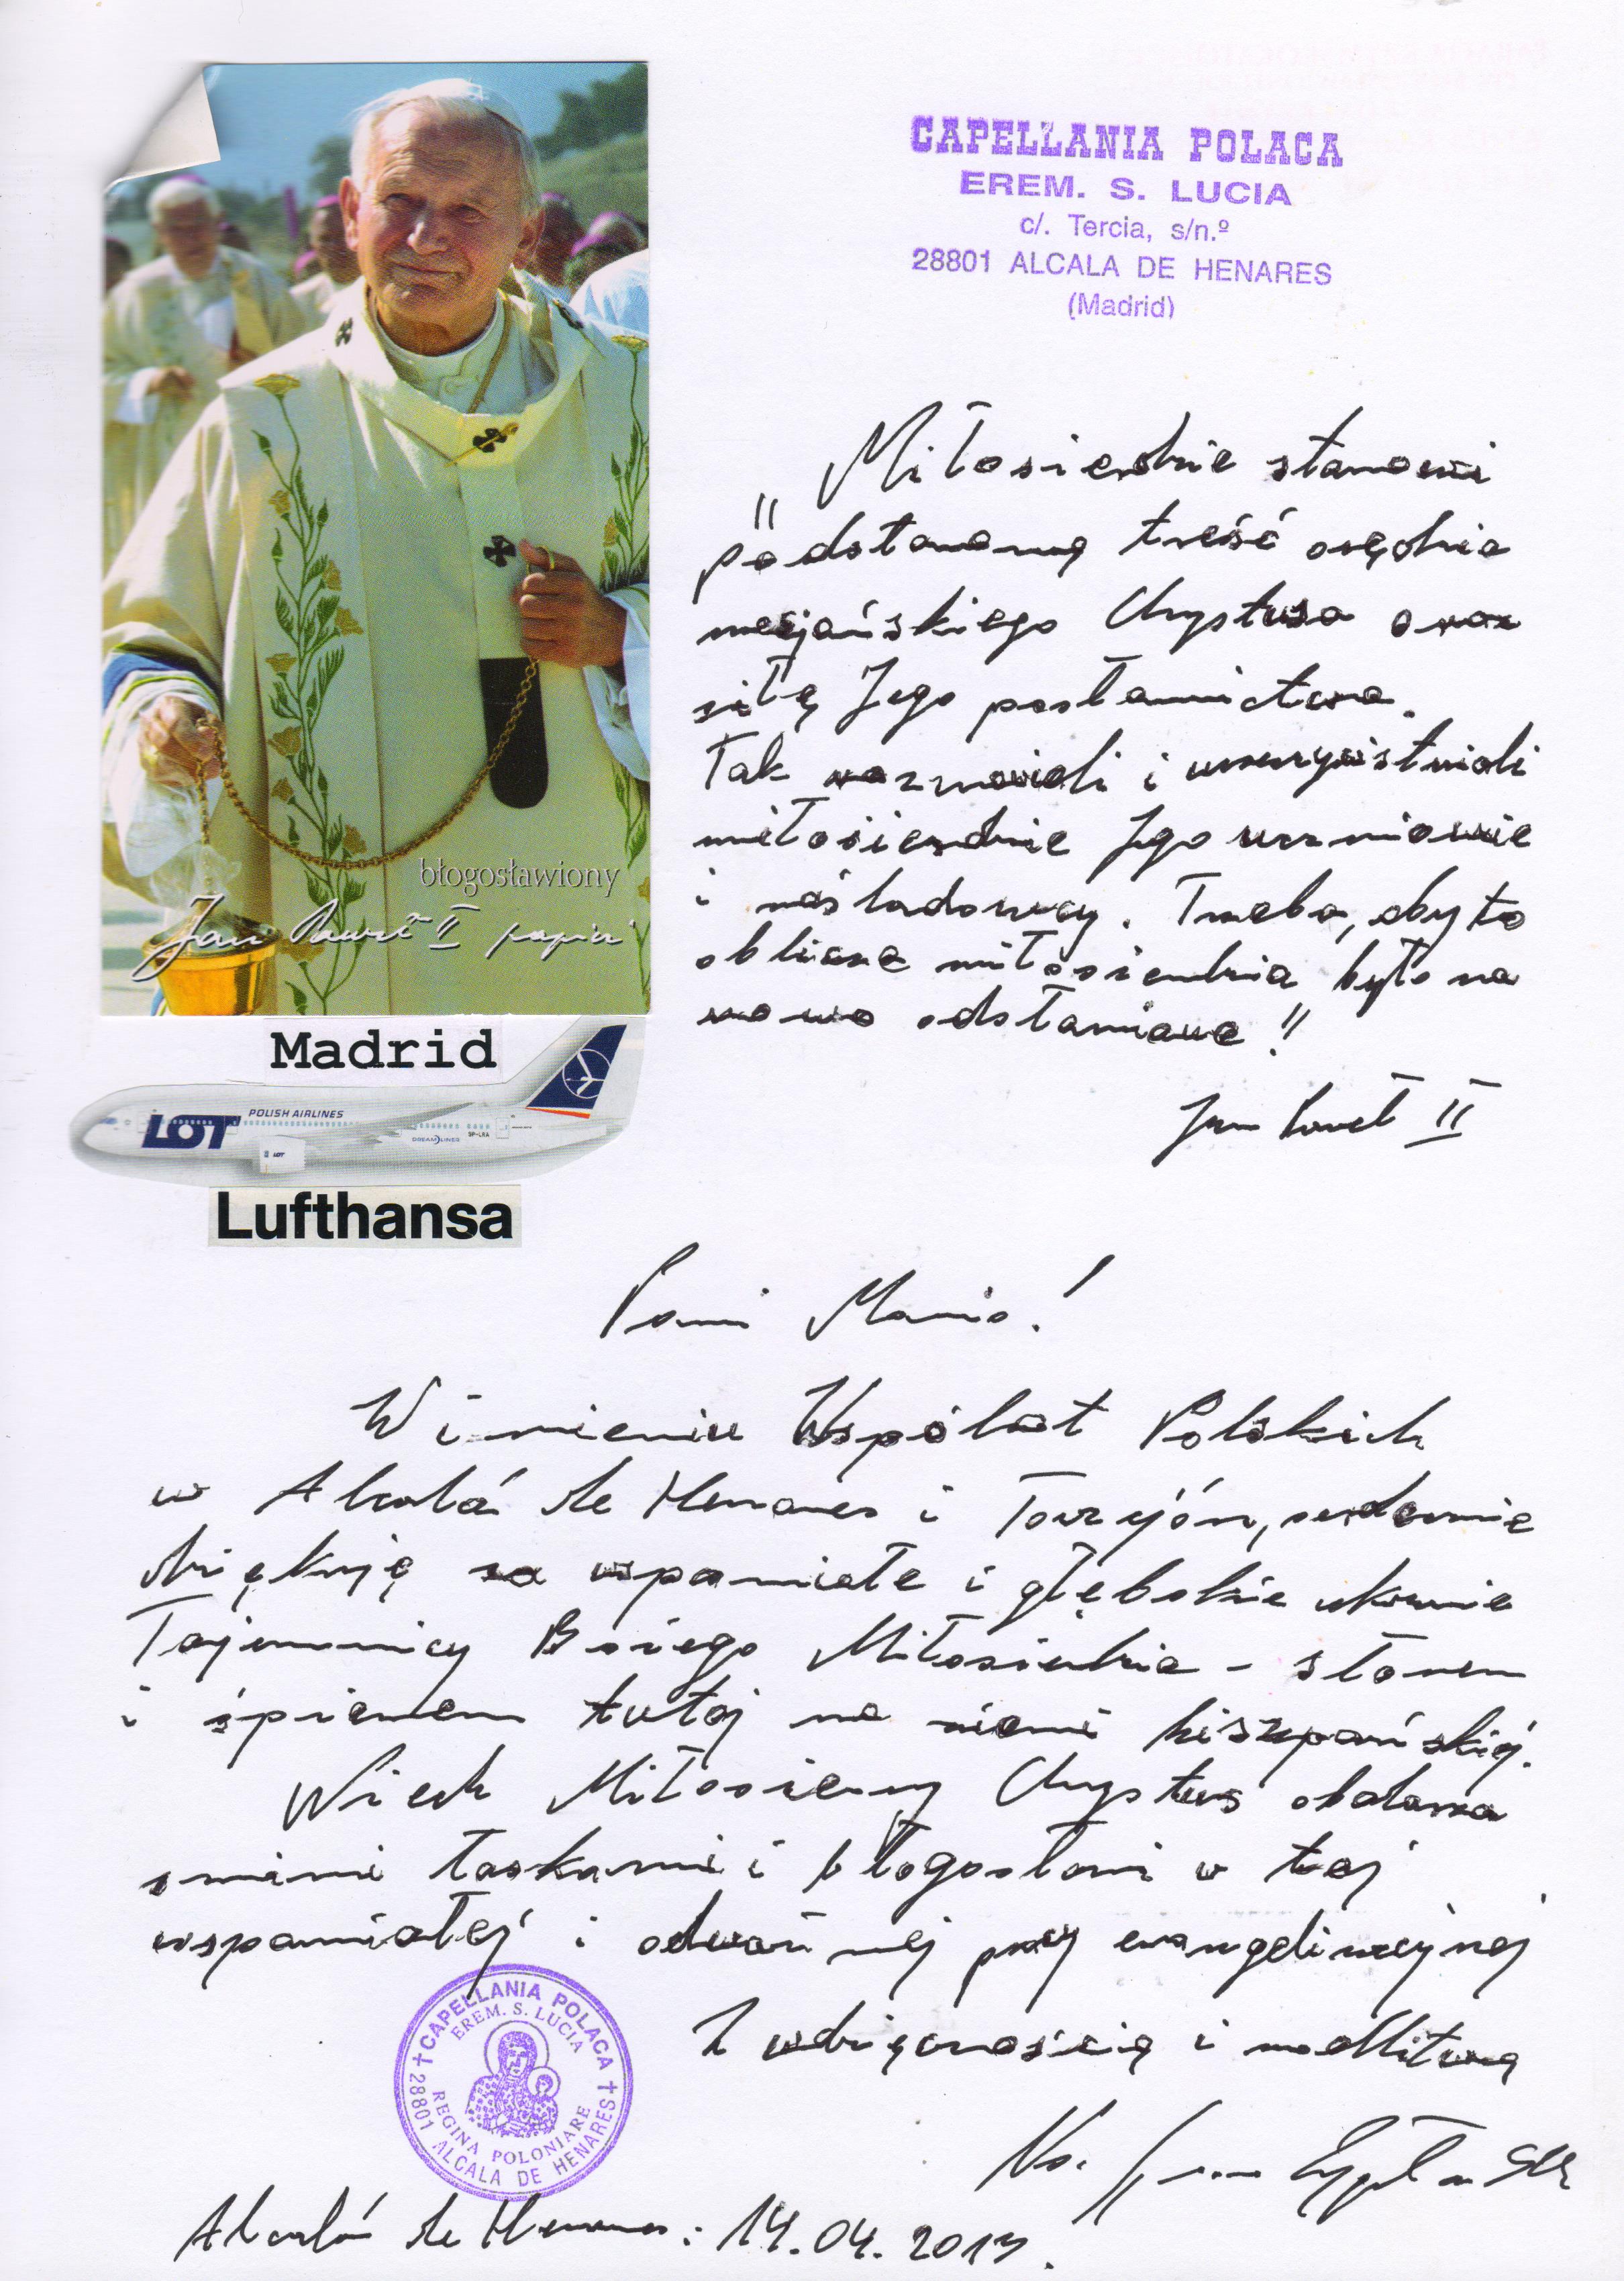 CAPELLANIA POLACA
EREM. S. LUCIA
c/. Tercia, s/n.º
28801 ALCALA DE HENARES
(Madrid)
błogosławiony
Jan Paweł II papież
Madrid
LOT POLISH AIRLINES
DREAMLINER
SP-LRA
LOT
Lufthansa
"Miłosierdzie stanowi
podstawową treść orędzia
mesjańskiego Chrystusa oraz
siłę Jego posłannictwa.
Tak rozumieli i urzeczywistniali
miłosierdzie Jego uczniowie
i naśladowcy. Trzeba, aby to
oblicze miłosierdzia było na
nowo odsłaniane!"
Jan Paweł II
Pani Mario!
W imieniu Wspólnot Polskich
w Alcalá de Henares i Torrejón, serdecznie
dziękuję za wspaniałe i głębokie ukazanie
Tajemnicy Bożego Miłosierdzia - słowem
i śpiewem tutaj na ziemi hiszpańskiej.
Niech Miłosierny Chrystus obdarza
swoimi łaskami i błogosławi w tej
wspaniałej i odważnej pracy ewangelizacyjnej
Z wdzięcznością i modlitwą
Ks.
CAPELLANIA POLACA
EREM. S. LUCIA
REGINA POLONIARE
28801 ALCALA DE HENARES
Alcalá de Henares: 14.04.2013.